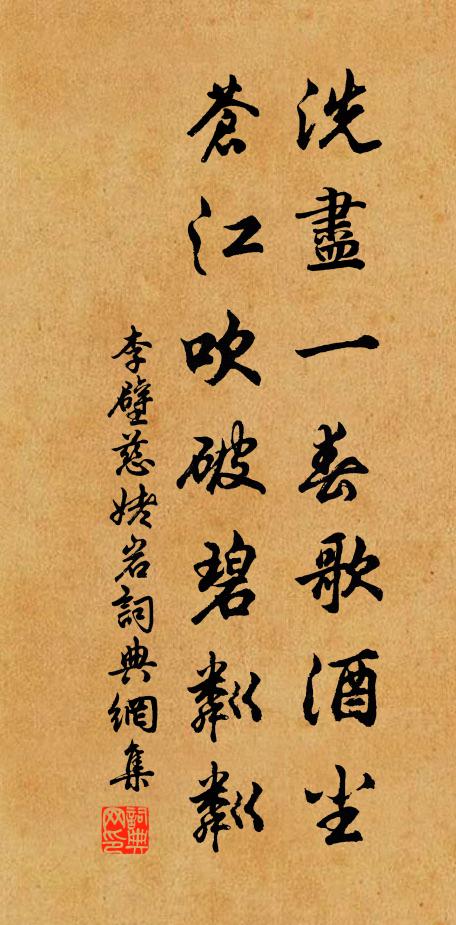 洗盡一春歌酒尘
蒼江吹破碧粼粼
李壁慈姥岩詞典網集
詞典
网印